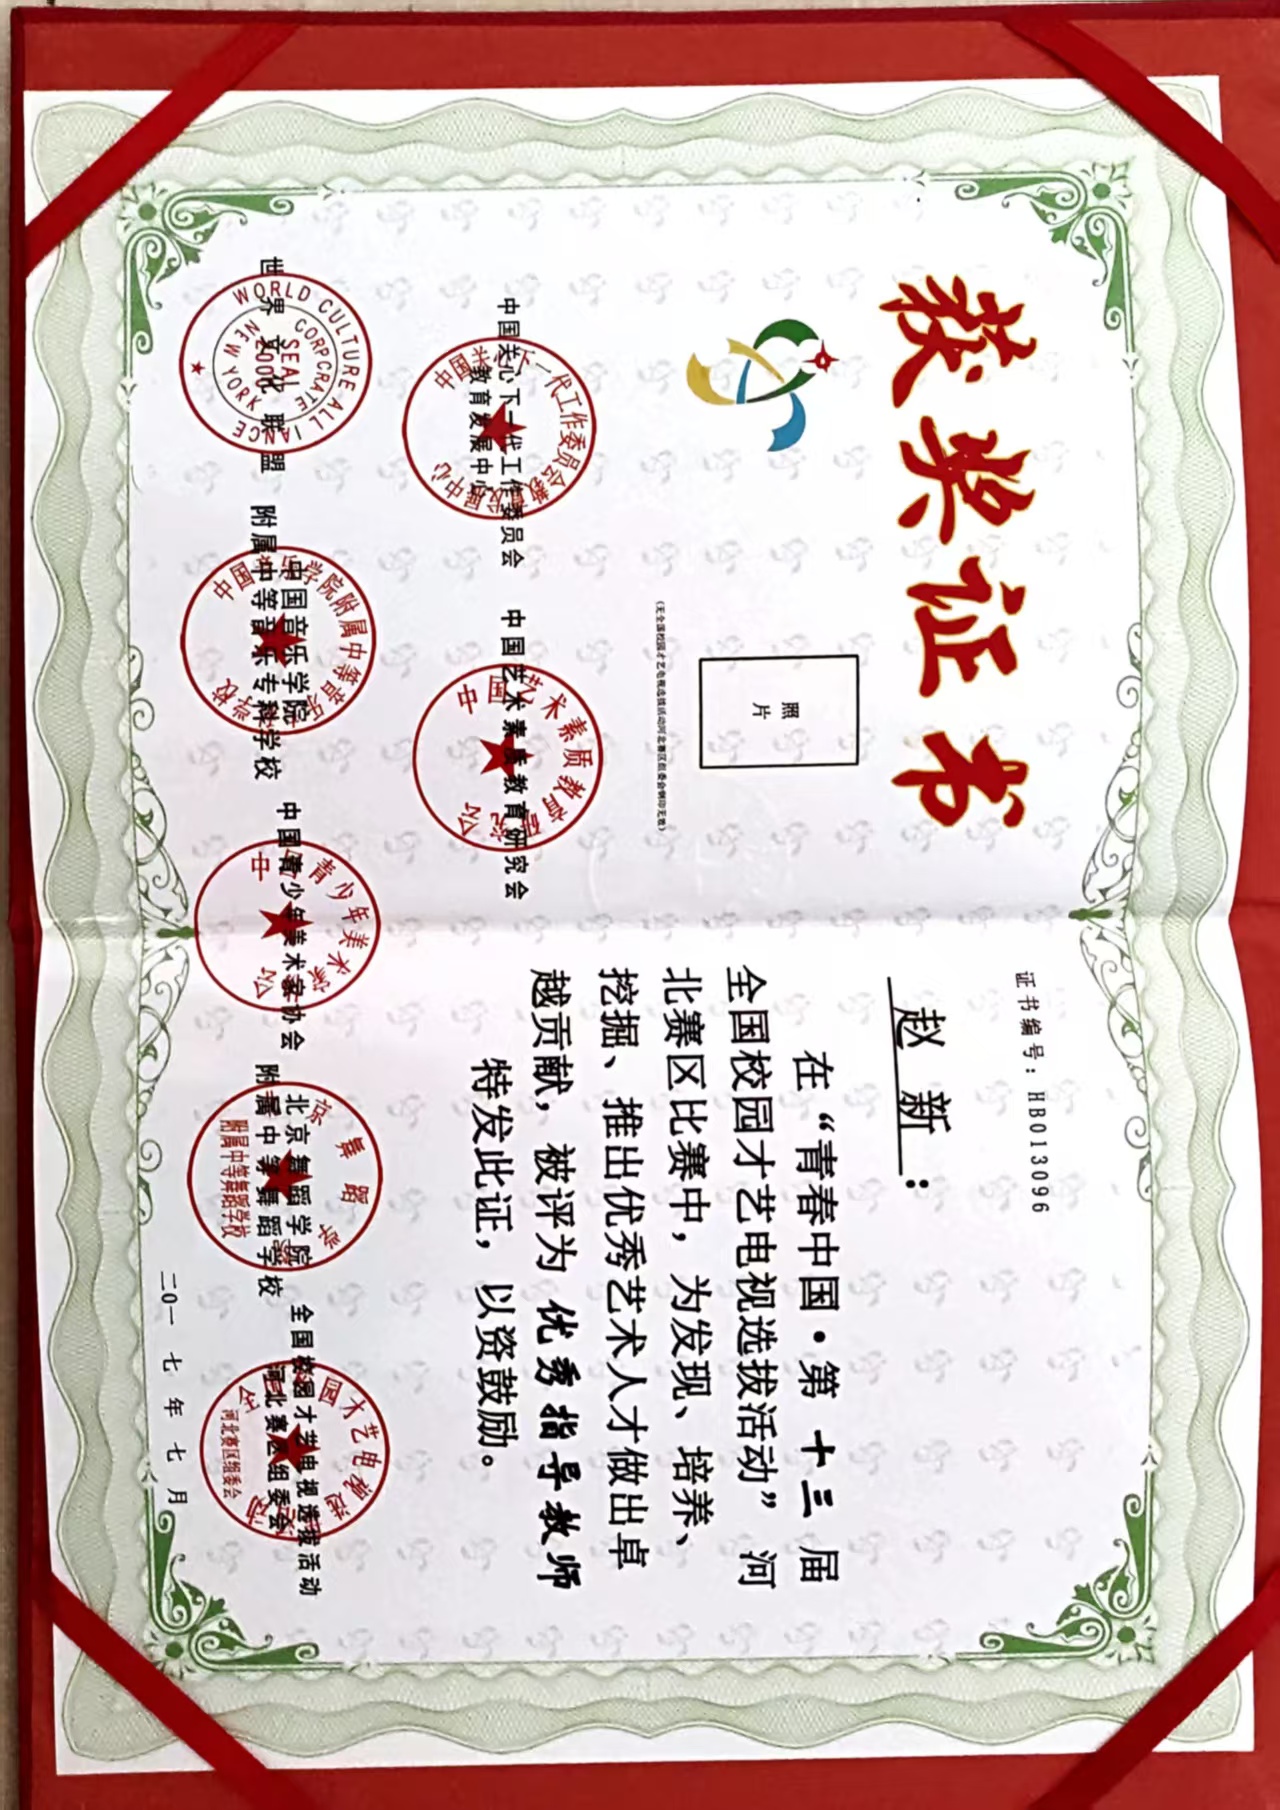 获奖证书
照
片
(无全国校园才艺电视选拔活动河北赛区组委会钢印无效)
中国关心下一代工作委员会
教育发展中心
中国艺术素质教育研究会
世界文化联盟
WORLD CULTURE ALLIANCE
CORPORATE
SEAL
2000
NEW YORK
中国音乐学院
附属中等音乐专科学校
中国青少年美术家协会
北京舞蹈学院
附属中等舞蹈学校
全国校园才艺电视选拔活动
河北赛区组委会
证书编号：HB013096
赵新：
在“青春中国·第十三届
全国校园才艺电视选拔活动”河
北赛区比赛中，为发现、培养、
挖掘、推出优秀艺术人才做出卓
越贡献，被评为优秀指导教师
特发此证，以资鼓励。
二〇一七年七月
中国关心下一代工作委员会教育发展中心
中国艺术素质教育研究会
附属中等舞蹈学校
河北赛区组委会